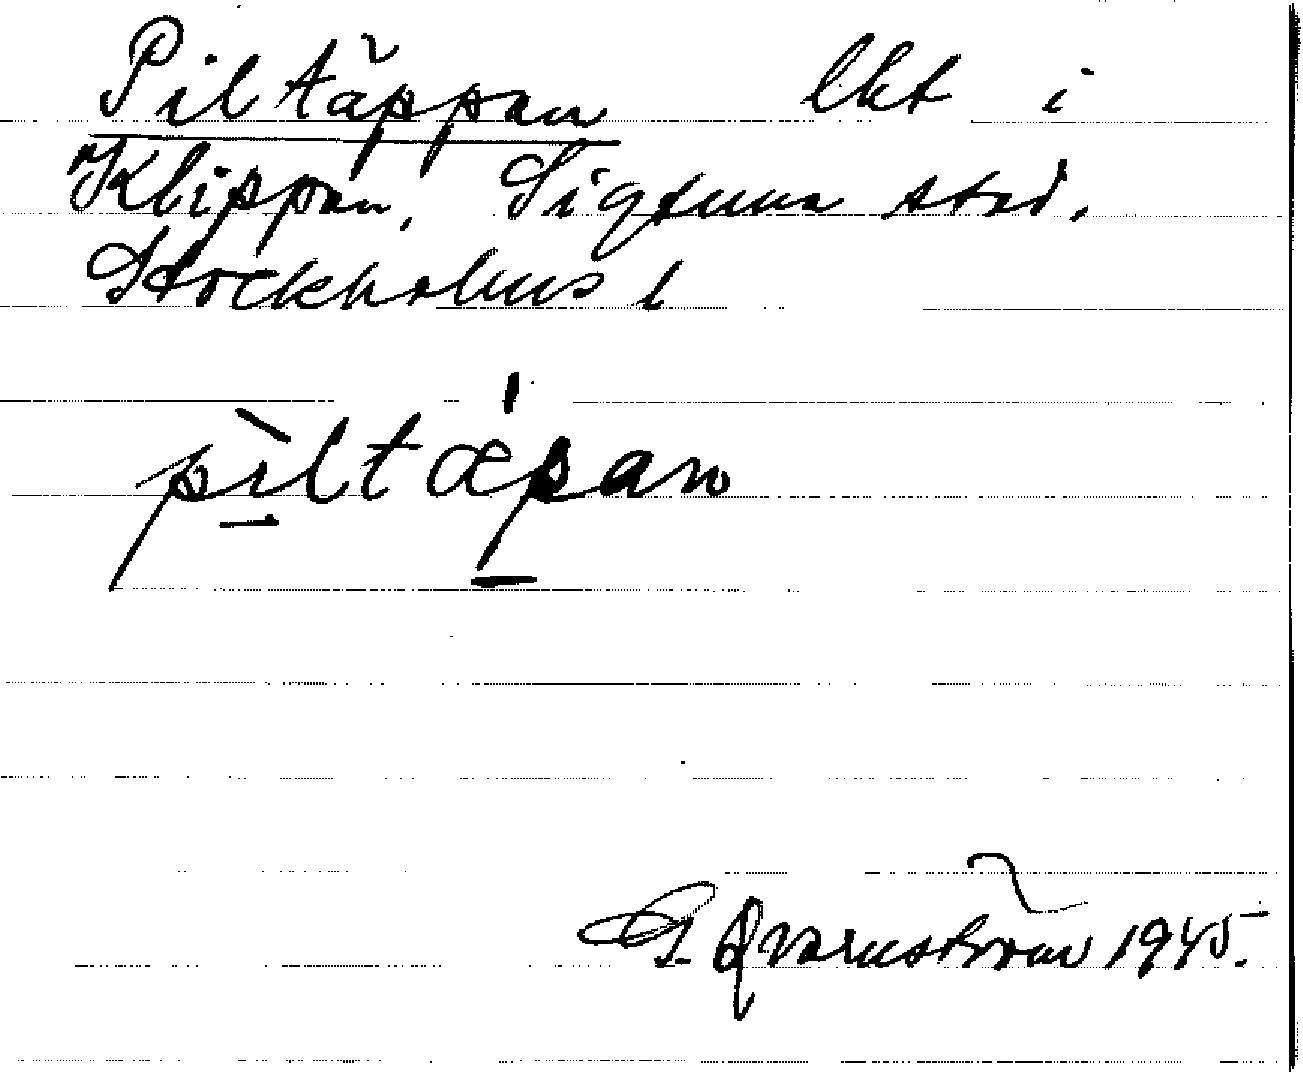 Piltäppan lht i
Klippan, Sigtuna stad,
Stockholms l
pìltǽpan
G. Qvarnström 1945.